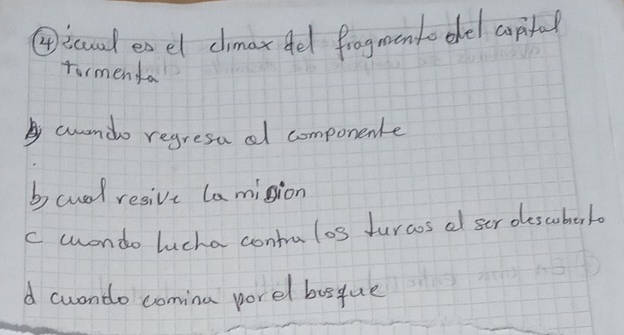 ④ ¿cual es el climax del fragmento del capital
tormenta
a) cuando regresa al componente
b) cual resive la mision
c cuando lucha contra los turcos al ser descubierto
d cuando comina por el busque